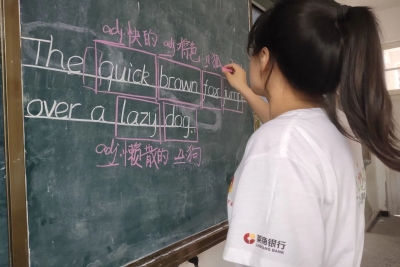 adj.快的 adj.棕色
The quick brown fox jumps
over a lazy dog.
adj.懒散的 n.狗
莱商银行
LAISHANG BANK